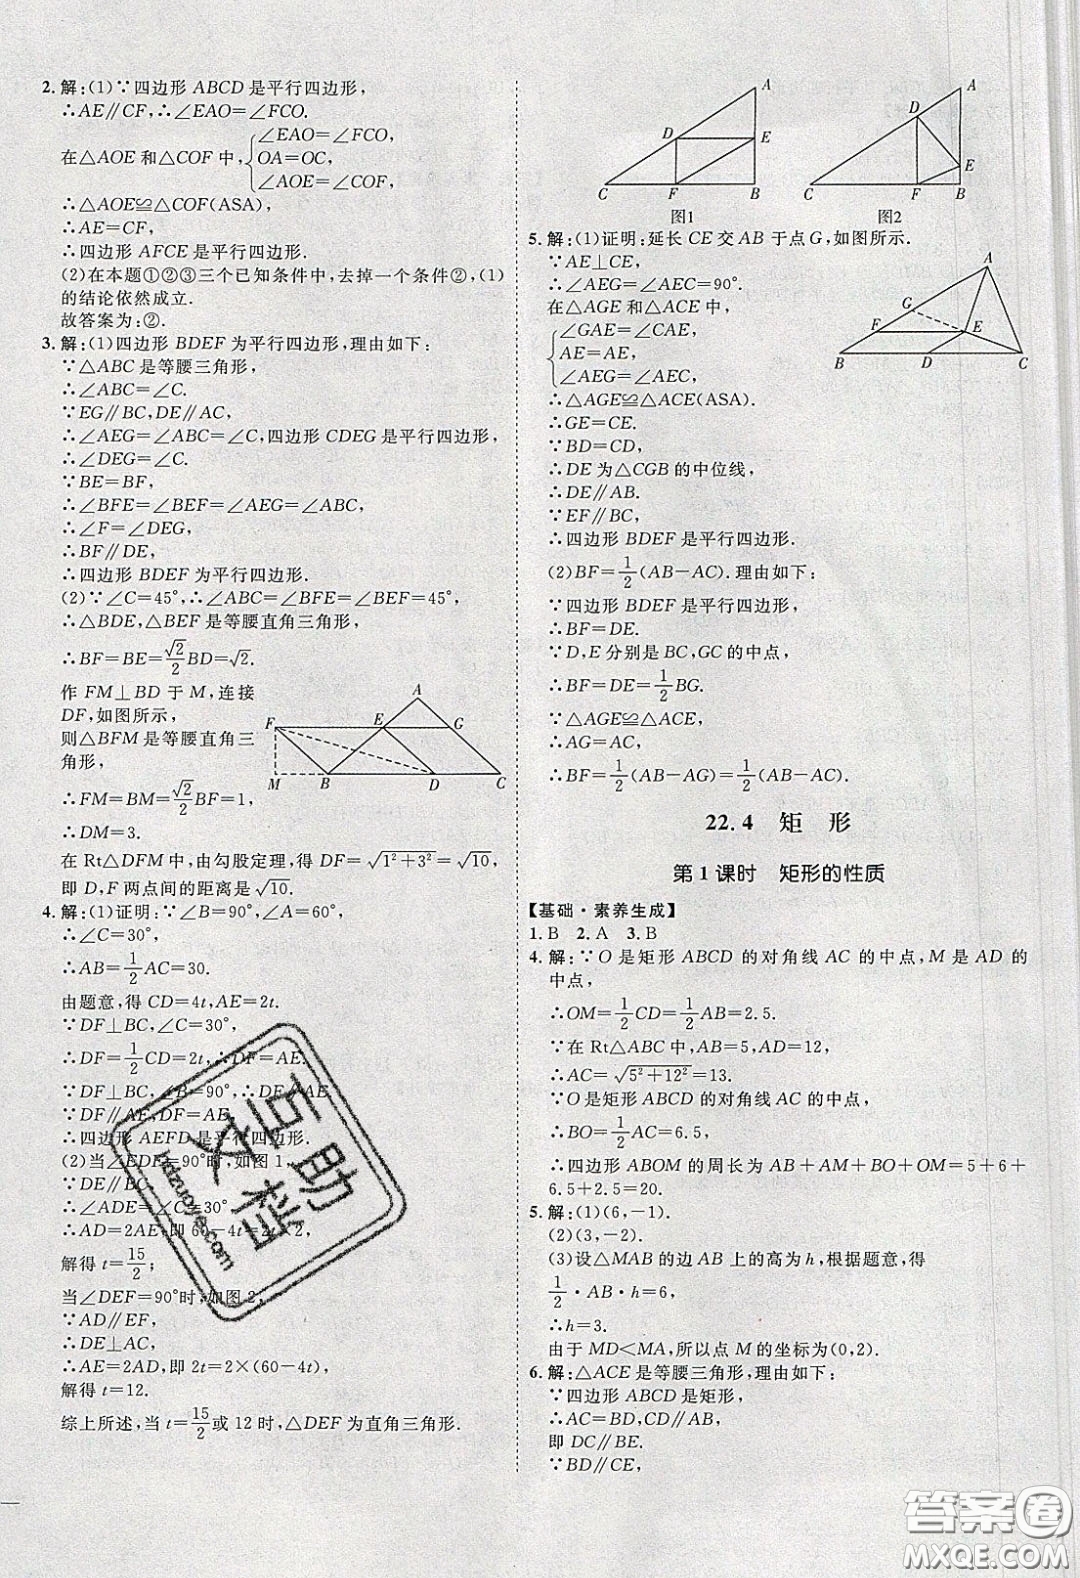 2. 解:(1)∵四边形 ABCD 是平行四边形,
∴AE∥CF,∴∠EAO=∠FCO.
在△AOE 和△COF 中,
∠EAO=∠FCO,
OA=OC,
∠AOE=∠COF,
∴△AOE≌△COF(ASA),
∴AE=CF,
∴四边形 AFCE 是平行四边形.
(2)在本题①②③三个已知条件中,去掉一个条件②,(1)
的结论依然成立.
故答案为:②.
3. 解:(1)四边形 BDEF 为平行四边形,理由如下:
∵△ABC 是等腰三角形,
∴∠ABC=∠C.
∵EG∥BC,DE∥AC,
∴∠AEG=∠ABC=∠C,四边形 CDEG 是平行四边形,
∴∠DEG=∠C.
∵BE=BF,
∴∠BFE=∠BEF=∠AEG=∠ABC,
∴∠F=∠DEG,
∴BF∥DE,
∴四边形 BDEF 为平行四边形.
(2)∵∠C=45°,∴∠ABC=∠BFE=∠BEF=45°,
∴△BDE,△BEF 是等腰直角三角形,
∴BF=BE=√2/2 BD=√2.
作 FM⊥BD 于 M,连接
DF,如图所示,
则△BFM 是等腰直角三
角形,
F E A G M B D C
∴FM=BM=√2/2 BF=1,
∴DM=3.
在 Rt△DFM 中,由勾股定理,得 DF=√(1²+3²)=√10,
即 D,F 两点间的距离是√10.
4. 解:(1)证明:∵∠B=90°,∠A=60°,
∴∠C=30°,
∴AB=1/2 AC=30.
由题意,得 CD=4t,AE=2t.
∵DF⊥BC,∠C=30°,
∴DF=1/2 CD=2t,∴DF=AE.
∵DF⊥BC,∠B=90°,∴DF∥AE
∵DF∥AE,DF=AE,
∴四边形 AEFD 是平行四边形.
(2)当∠EDF=90°时,如图 1,
∵DE∥BC,
∴∠ADE=∠C=30°,
∴AD=2AE,即 60-4t=2t×2,
解得 t=15/2;
当∠DEF=90°时,如图 2,
∵AD∥EF,
∴DE⊥AC,
∴AE=2AD,即 2t=2×(60-4t),
解得 t=12.
综上所述,当 t=15/2 或 12 时,△DEF 为直角三角形.
A D E C F B
图1
A D E C F B
图2
5. 解:(1)证明:延长 CE 交 AB 于点 G,如图所示.
∵AE⊥CE,
∴∠AEG=∠AEC=90°.
在△AGE 和△ACE 中,
∠GAE=∠CAE,
AE=AE,
∠AEG=∠AEC,
A G F E B D C
∴△AGE≌△ACE(ASA).
∴GE=CE.
∵BD=CD,
∴DE 为△CGB 的中位线,
∴DE∥AB.
∵EF∥BC,
∴四边形 BDEF 是平行四边形.
(2)BF=1/2(AB-AC).理由如下:
∵四边形 BDEF 是平行四边形,
∴BF=DE.
∵D,E 分别是 BC,GC 的中点,
∴BF=DE=1/2 BG.
∵△AGE≌△ACE,
∴AG=AC,
∴BF=1/2(AB-AG)=1/2(AB-AC).
22.4 矩 形
第 1 课时 矩形的性质
【基础·素养生成】
1. B 2. A 3. B
4. 解:∵O 是矩形 ABCD 的对角线 AC 的中点,M 是 AD 的
中点,
∴OM=1/2 CD=1/2 AB=2.5.
∵在 Rt△ABC 中,AB=5,AD=12,
∴AC=√(5²+12²)=13.
∵O 是矩形 ABCD 的对角线 AC 的中点,
∴BO=1/2 AC=6.5,
∴四边形 ABOM 的周长为 AB+AM+BO+OM=5+6+
6.5+2.5=20.
5. 解:(1)(6,-1).
(2)(3,-2).
(3)设△MAB 的边 AB 上的高为 h,根据题意,得
1/2·AB·h=6,
∴h=3.
由于 MD<MA,所以点 M 的坐标为(0,2).
6. 解:△ACE 是等腰三角形,理由如下:
∵四边形 ABCD 是矩形,
∴AC=BD,CD∥AB,
即 DC∥BE.
∵BD∥CE,
百助文档
hdzuoye.com
答案圈
MXQE.COM